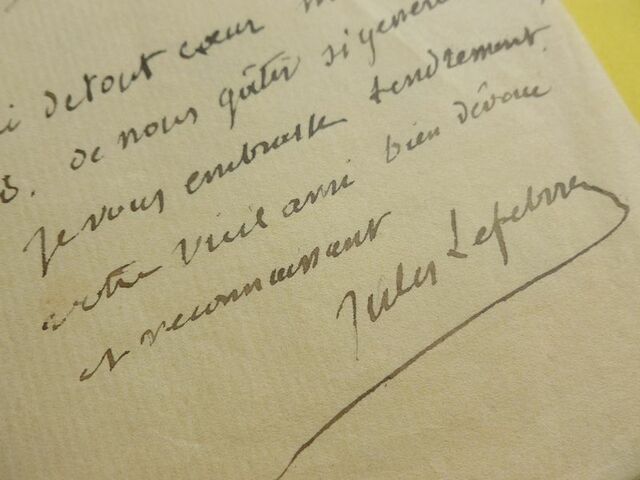 de tout cœur
de nous gâter si génére
Je vous embrasse tendrement.
votre vieil ami bien dévoué
et reconnaissant
Jules Lefebvre